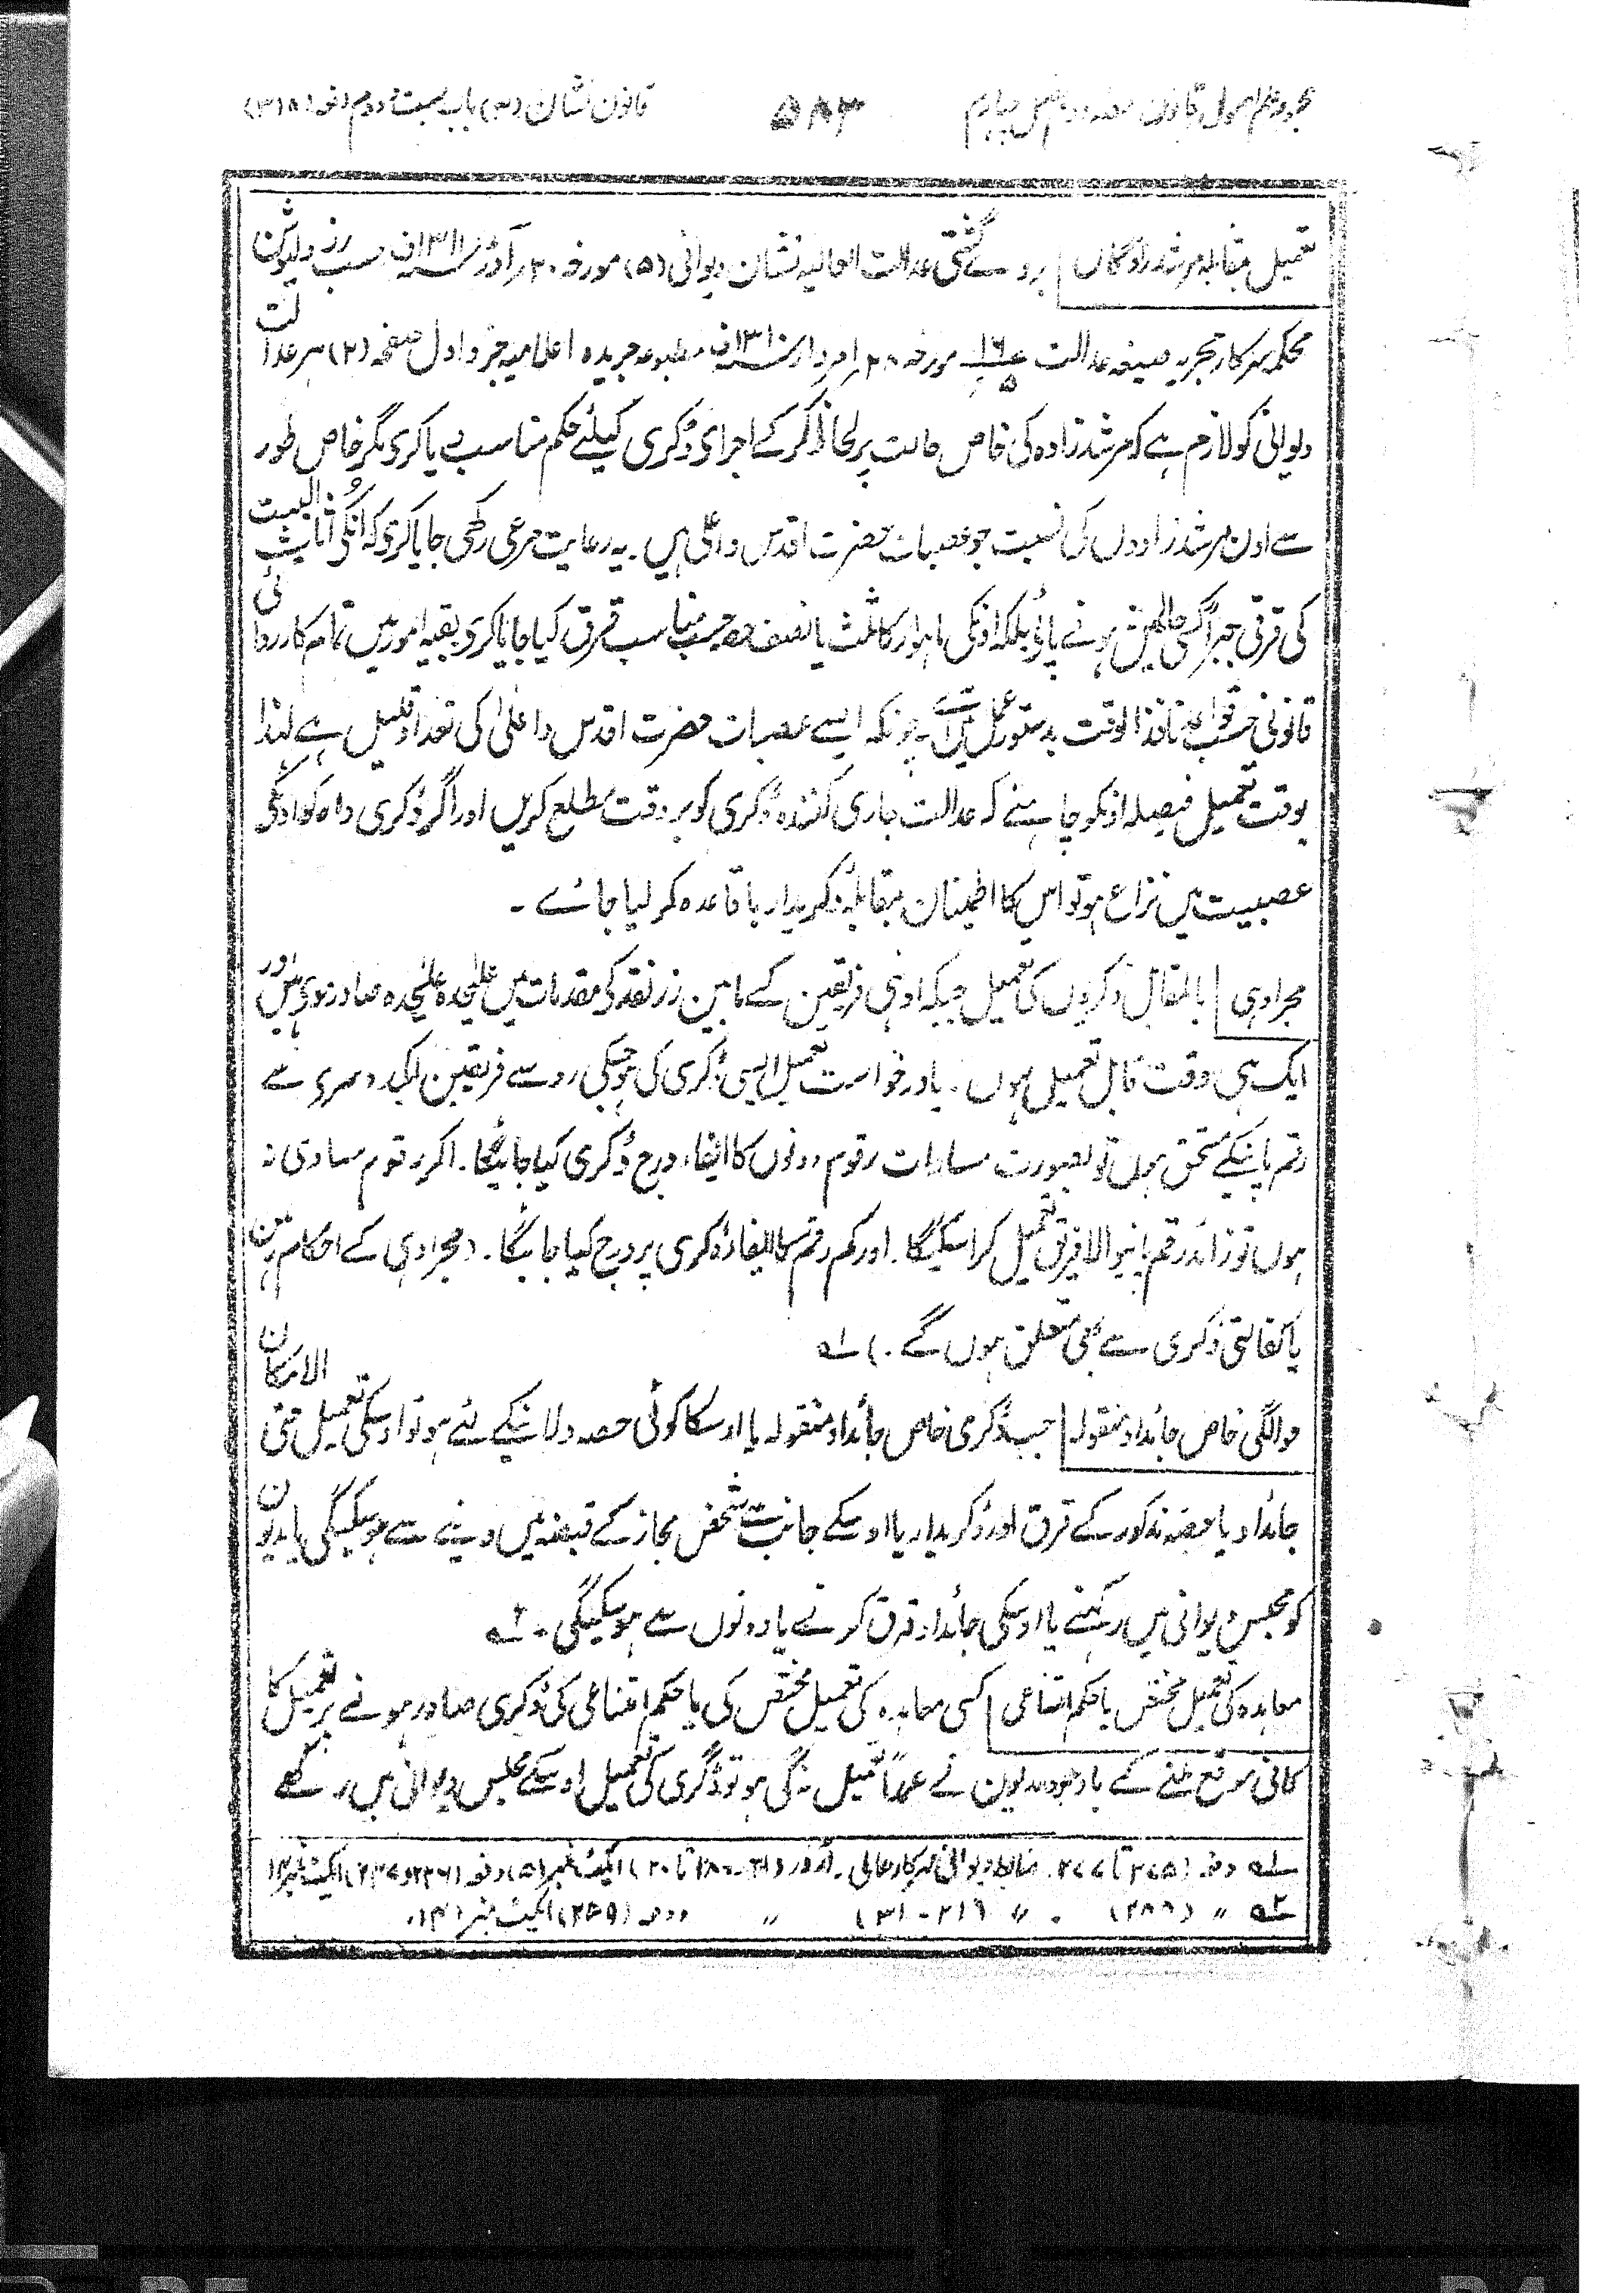 مجموعہ علم اصول قانون جلد دوم فصل چہارم ۵۸۳ قانون نشان (۳) باب بست و دوم دفعہ (۳۱۸)
تعمیل بمقابلہ مرشدزادگان بروے گشتی عدالت العالیہ نشان دیوانی (۵) مورخہ ۲۰ آذر ۱۳۱۱ف حسب رزولیوشن
محکمہ سرکار تجریہ صیغہ عدالت مورخہ ۲۸ امرداد ۱۳۱۰ف مطبوعہ جریدہ اعلامیہ جزو اول صفحہ (۲) ہر عدالت
دیوانی کو لازم ہے کہ مرشدزادہ کی خاص حالت پر لحاظ کرکے اجرای ڈگری کیلئے حکم مناسب دیا کری مگر خاص طور
سے اون مرشدزادوں کی نسبت جو عصبات حضرت اقدس و اعلیٰ ہیں۔ یہ رعایت مرعی رکھی جایا کری کہ انکی اثاث البیت
کی قرقی جبراً کسی حالت میں ہونے نپائے بلکہ اونکی ماہوار کا ثلث یا نصف حصہ حسب مناسب قرق کیا جایا کرے بقیہ امور میں تمام کارروائی
قانونی حسب قواعد نافذ الوقت بدستور عمل میں آئے۔ چونکہ ایسے عصبات حضرت اقدس و اعلیٰ کی تعداد قلیل ہے لہذا
بوقت تعمیل فیصلہ اونکو چاہئے کہ عدالت جاری کنندہ ڈگری کو بر وقت مطلع کریں اور اگر ڈگری دار کو اونکی
عصبیت میں نزاع ہو تو اس کا اطمینان بمقابلہ ڈگریدار باقاعدہ کر لیا جائے۔
مجرادہی بالمقابل ڈگریوں کی تعمیل جبکہ اونہی فریقین کے مابین زر نقد کی مقدمات میں علیحدہ علیحدہ صادر ہوی ہیں اور
ایک ہی وقت قابل تعمیل ہوں۔ یا درخواست تعمیل ایسی ڈگری کی ہو جسکی رو سے فریقین ایک دوسری سے
رقم پانیکے مستحق ہوں تو بصورت مساوات رقوم دونوں کا ایفاء درج ڈگری کیا جائیگا۔ اگر رقوم مساوی نہ
ہوں تو زائد رقم پانیوالا فریق تعمیل کرا سکیگا۔ اور کم رقم کا ایفاء ڈگری پر درج کیا جائیگا۔ (مجرادہی کے احکام رہن
یا کفالتی ڈگری سے بھی متعلق ہوں گے۔) ۱ہ
حوالگی خاص جائداد منقولہ جب ڈگری خاص جائداد منقولہ یا اوسکا کوئی حصہ دلانیکے لئے ہو تو اوسکی تعمیل حتی الامکان
جائداد یا حصہ مذکور کے قرق اور ڈگریدار یا اوسکے جانب سے شخص مجاز کے قبضہ میں دینے سے ہو سکیگی یا مدیون
کو محبس دیوانی میں رکھنے یا اوسکی جائداد قرق کرنے یا دونوں سے ہو سکیگی۔ ۲ہ
معاہدہ کی تعمیل مختص یا حکم امتناعی کسی معاہدہ کی تعمیل مختص کی یا حکم امتناعی کی ڈگری صادر ہونے پر تعمیل کا
کافی موقع ملنے کے باوجود مدیون نے عمداً تعمیل نہ کی ہو تو ڈگری کی تعمیل اوسکے محبس دیوانی میں رکھے
۱ہ دفعہ (۲۷۵ تا ۲۷۷) ضابطہ دیوانی سرکارعالی۔ آرڈر (۲۱۔ ۱۸ تا ۲۰) ایکٹ نمبر (۵) دفعہ (۲۴۶ و ۲۴۷) ایکٹ نمبر ۱۴
۲ہ 〃 (۲۸۶) 〃 (۳۱-۲۱) 〃 دفعہ (۲۵۹) ایکٹ نمبر ۱۴